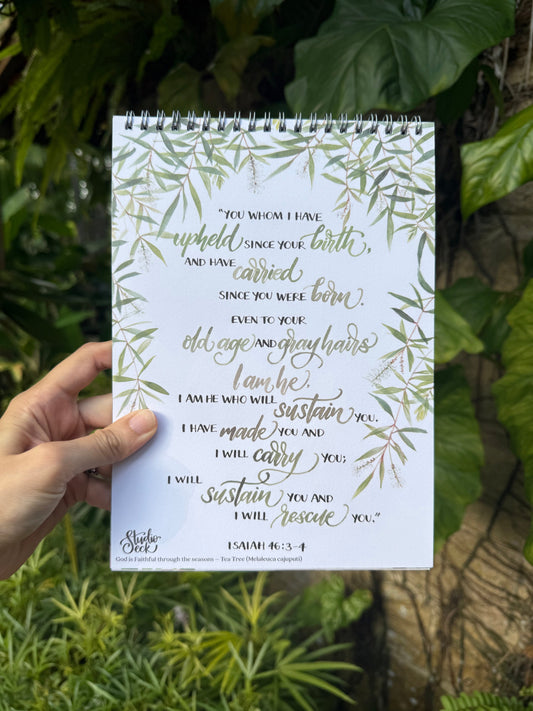 "YOU WHOM I HAVE
upheld SINCE YOUR birth,
AND HAVE carried
SINCE YOU WERE born.
EVEN TO YOUR
old age AND gray hairs
I am he,
I AM HE WHO WILL sustain YOU.
I HAVE made YOU AND
I WILL carry YOU;
I WILL
sustain YOU AND
I WILL rescue YOU."
ISAIAH 46:3-4
Studio
eek
God is Faithful through the seasons – Tea Tree (Melaleuca cajuputi)